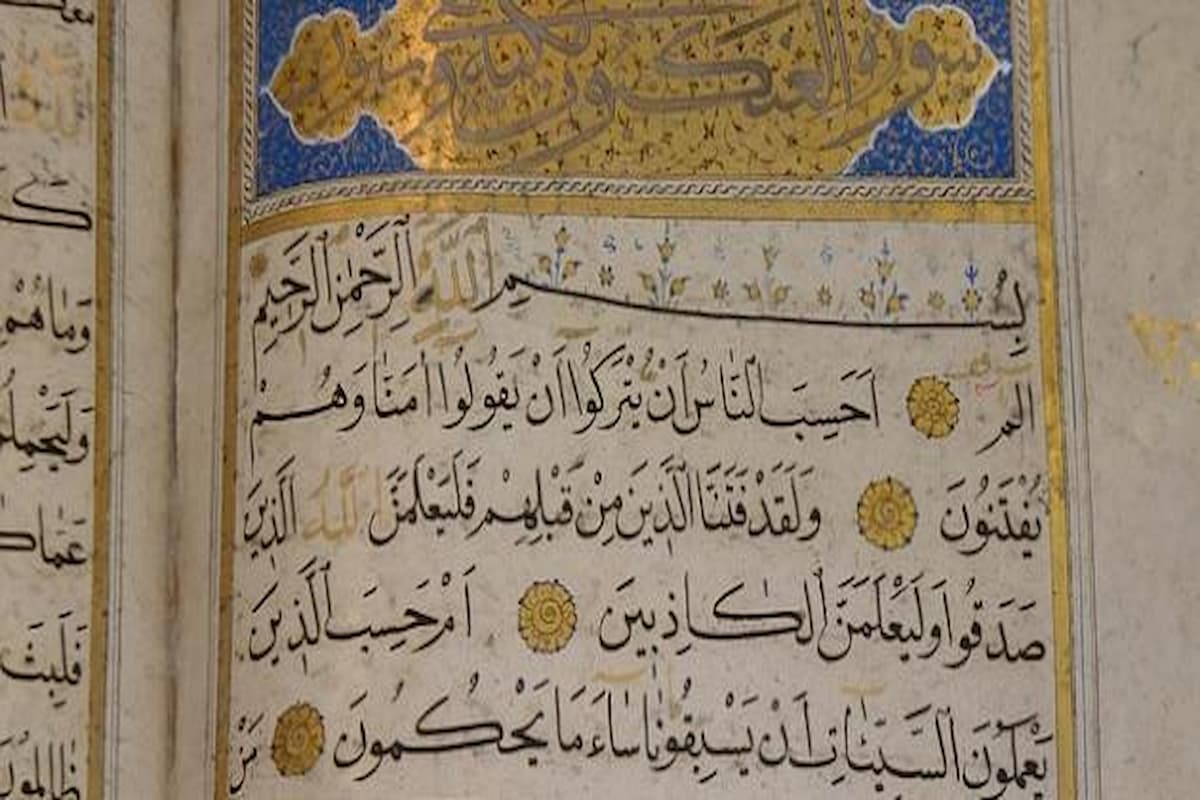 سورة العنكبوت
بسم الله الرحمن الرحيم
الم اَحَسِبَ النَّاسُ اَنْ يُتْرَكُوا اَنْ يَقُولُوا اٰمَنَّا وَهُمْ
يُفْتَنُونَ وَلَقَدْ فَتَنَّا الَّذِينَ مِنْ قَبْلِهِمْ فَلَيَعْلَمَنَّ اللّٰهُ الَّذِينَ
صَدَقُوا وَلَيَعْلَمَنَّ الْكَاذِبِينَ اَمْ حَسِبَ الَّذِينَ
يَعْمَلُونَ السَّيِّـَٔاتِ اَنْ يَسْبِقُونَا سَاءَ مَا يَحْكُمُونَ مَنْ
وَمَا هُمْ
فَلَبِثَ
ظَالِمُونَ